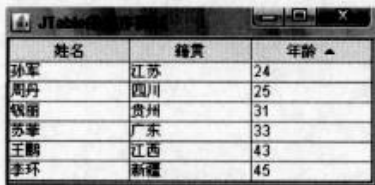 JTable
姓名 籍贯 年龄
孙军 江苏 24
周丹 四川 25
钱丽 贵州 31
苏苹 广东 33
王鹏 江西 43
李环 新疆 45